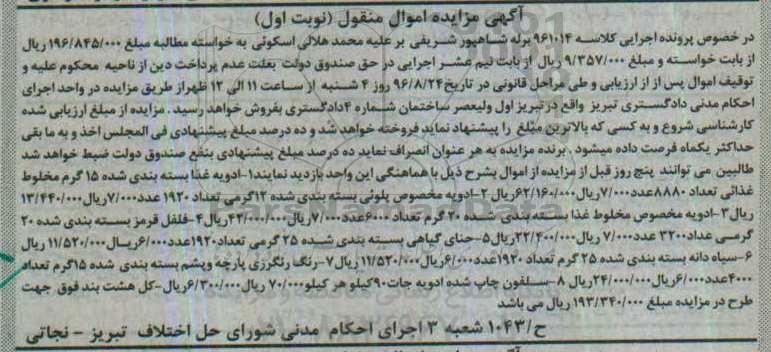 آگهی مزایده اموال منقول (نوبت اول)
در خصوص پرونده اجرایی کلاسه ۹۶۱۰۱۴ برله شاهپور شریفی بر علیه محمد هلالی اسکوئی به خواسته مطالبه مبلغ ۱۹۶/۸۴۵/۰۰۰ ریال
از بابت خواسته و مبلغ ۹/۳۵۷/۰۰۰ ریال از بابت نیم عشر اجرایی در حق صندوق دولت بعلت عدم پرداخت دین از ناحیه محکوم علیه و
توقیف اموال پس از از ارزیابی و طی مراحل قانونی در تاریخ ۹۶/۸/۲۴ روز ۴ شنبه از ساعت ۱۱ الی ۱۲ ظهر از طریق مزایده در واحد اجرای
احکام مدنی دادگستری تبریز واقع در تبریز اول ولیعصر ساختمان شماره ۴ دادگستری بفروش خواهد رسید . مزایده از مبلغ ارزیابی شده
کارشناسی شروع و به کسی که بالاترین مبلغ را پیشنهاد نماید فروخته خواهد شد و ده درصد مبلغ پیشنهادی فی المجلس اخذ و به ما بقی
حداکثر یکماه فرصت داده میشود . برنده مزایده به هر عنوان انصراف نماید ده درصد مبلغ پیشنهادی بنفع صندوق دولت ضبط خواهد شد
طالبین می توانند پنج روز قبل از مزایده از اموال بشرح ذیل با هماهنگی این واحد بازدید نمایند۱-ادویه غذا بسته بندی شده ۱۵ گرم مخلوط
غذائی تعداد ۸۸۸۰عدد۷/۰۰۰ریال۶۲/۱۶۰/۰۰۰ریال ۲-ادویه مخصوص پلوئی بسته بندی شده ۱۲گرمی تعداد ۱۹۲۰ عدد۷/۰۰۰ریال۱۳/۴۴۰/۰۰۰
ریال۳-ادویه مخصوص مخلوط غذا بسته بندی شده ۲۰ گرم تعداد ۶۰۰۰عدد۷/۰۰۰ریال۴۲/۰۰۰/۰۰۰ریال۴-فلفل قرمز بسته بندی شده ۲۰
گرمی عداد۳۲۰۰ عدد۷/۰۰۰ ریال۲۲/۴۰۰/۰۰۰ریال۵-حنای گیاهی بسته بندی شده ۲۵ گرمی تعداد۱۹۲۰عدد۶/۰۰۰ریال۱۱/۵۲۰/۰۰۰ ریال
۶-سیاه دانه بسته بندی شده ۲۵ گرم تعداد ۱۹۲۰عدد۶/۰۰۰ریال۱۱/۵۲۰/۰۰۰ریال۷-رنگ رنگرزی پارچه وپشم بسته بندی شده ۱۵گرم تعداد
۴۰۰۰عدد۶/۰۰۰ریال۲۴/۰۰۰/۰۰۰ریال ۸-سلفون چاپ شده ادویه جات۹۰کیلو هر کیلو۷۰/۰۰۰ ریال۶/۳۰۰/۰۰۰ریال-کل هشت بند فوق جهت
طرح در مزایده مبلغ ۱۹۳/۳۴۰/۰۰۰ ریال می باشد
ح/۱۰۴۳ شعبه ۳ اجرای احکام مدنی شورای حل اختلاف تبریز - نجاتی